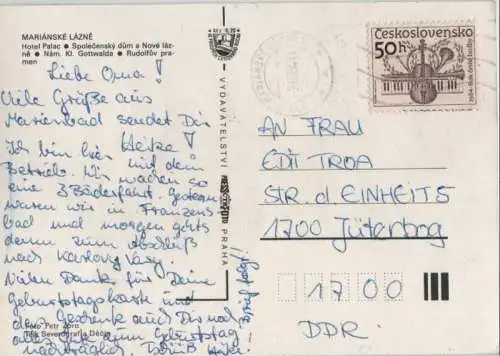 MARIÁNSKÉ LÁZNĚ
Hotel Palac ● Společenský dům a Nové láz-
ně ● Nám. Kl. Gottwalda ● Rudolfův pra-
men
Liebe Oma!
Viele Grüße aus
Marienbad sendet Dir
Heike!
Ich bin hier mit dem
Betrieb. Wir machen so
eine 3 Bäderfahrt. Gestern
waren wir in Franzens
bad und morgen gehts
dann zum Abschluß
nach Karlovy Vary.
Vielen Dank für Deine
Geburtstagskarte und
das Geschenk auch Dir noch
alles Gute zum Geburtstag
nachträglich. Tschüß Heike
Foto Petr Zora
Tisk Severografia Děčín
VYDAVATELSTVÍ
PRAHA
Československo
50h
AN FRAU
EDIT TROA
STR. d. EINHEIT 5
1700 Jüterbog
1700
DDR